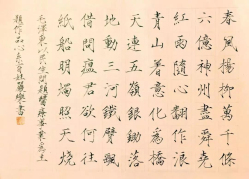 春風楊柳萬千條
六億神州盡舜堯
紅雨隨心翻作浪
青山著意化為橋
天連五嶺銀鋤落
地動三河鐵臂
借問瘟君欲何往
紙船明燭照天燒